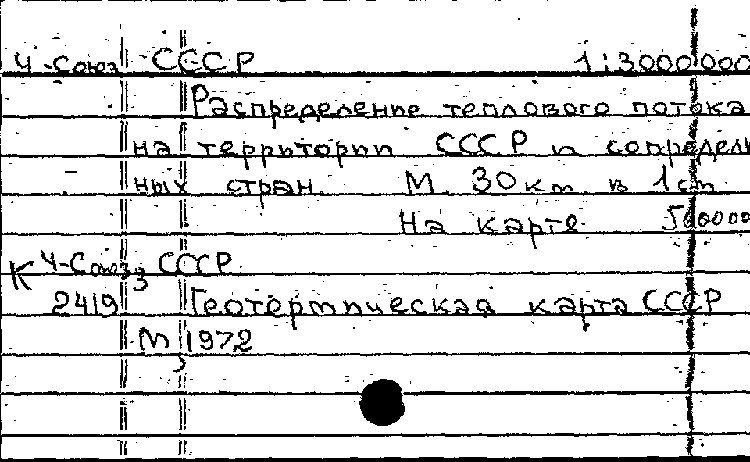 4-Союз СССР 1:3000000
Распределение теплового потока
на территории СССР и сопредель
ных стран. М. 30 км в 1 cm
На карте
4-Союз СССР
К 2419 Геотермическая карта СССР
М 1972